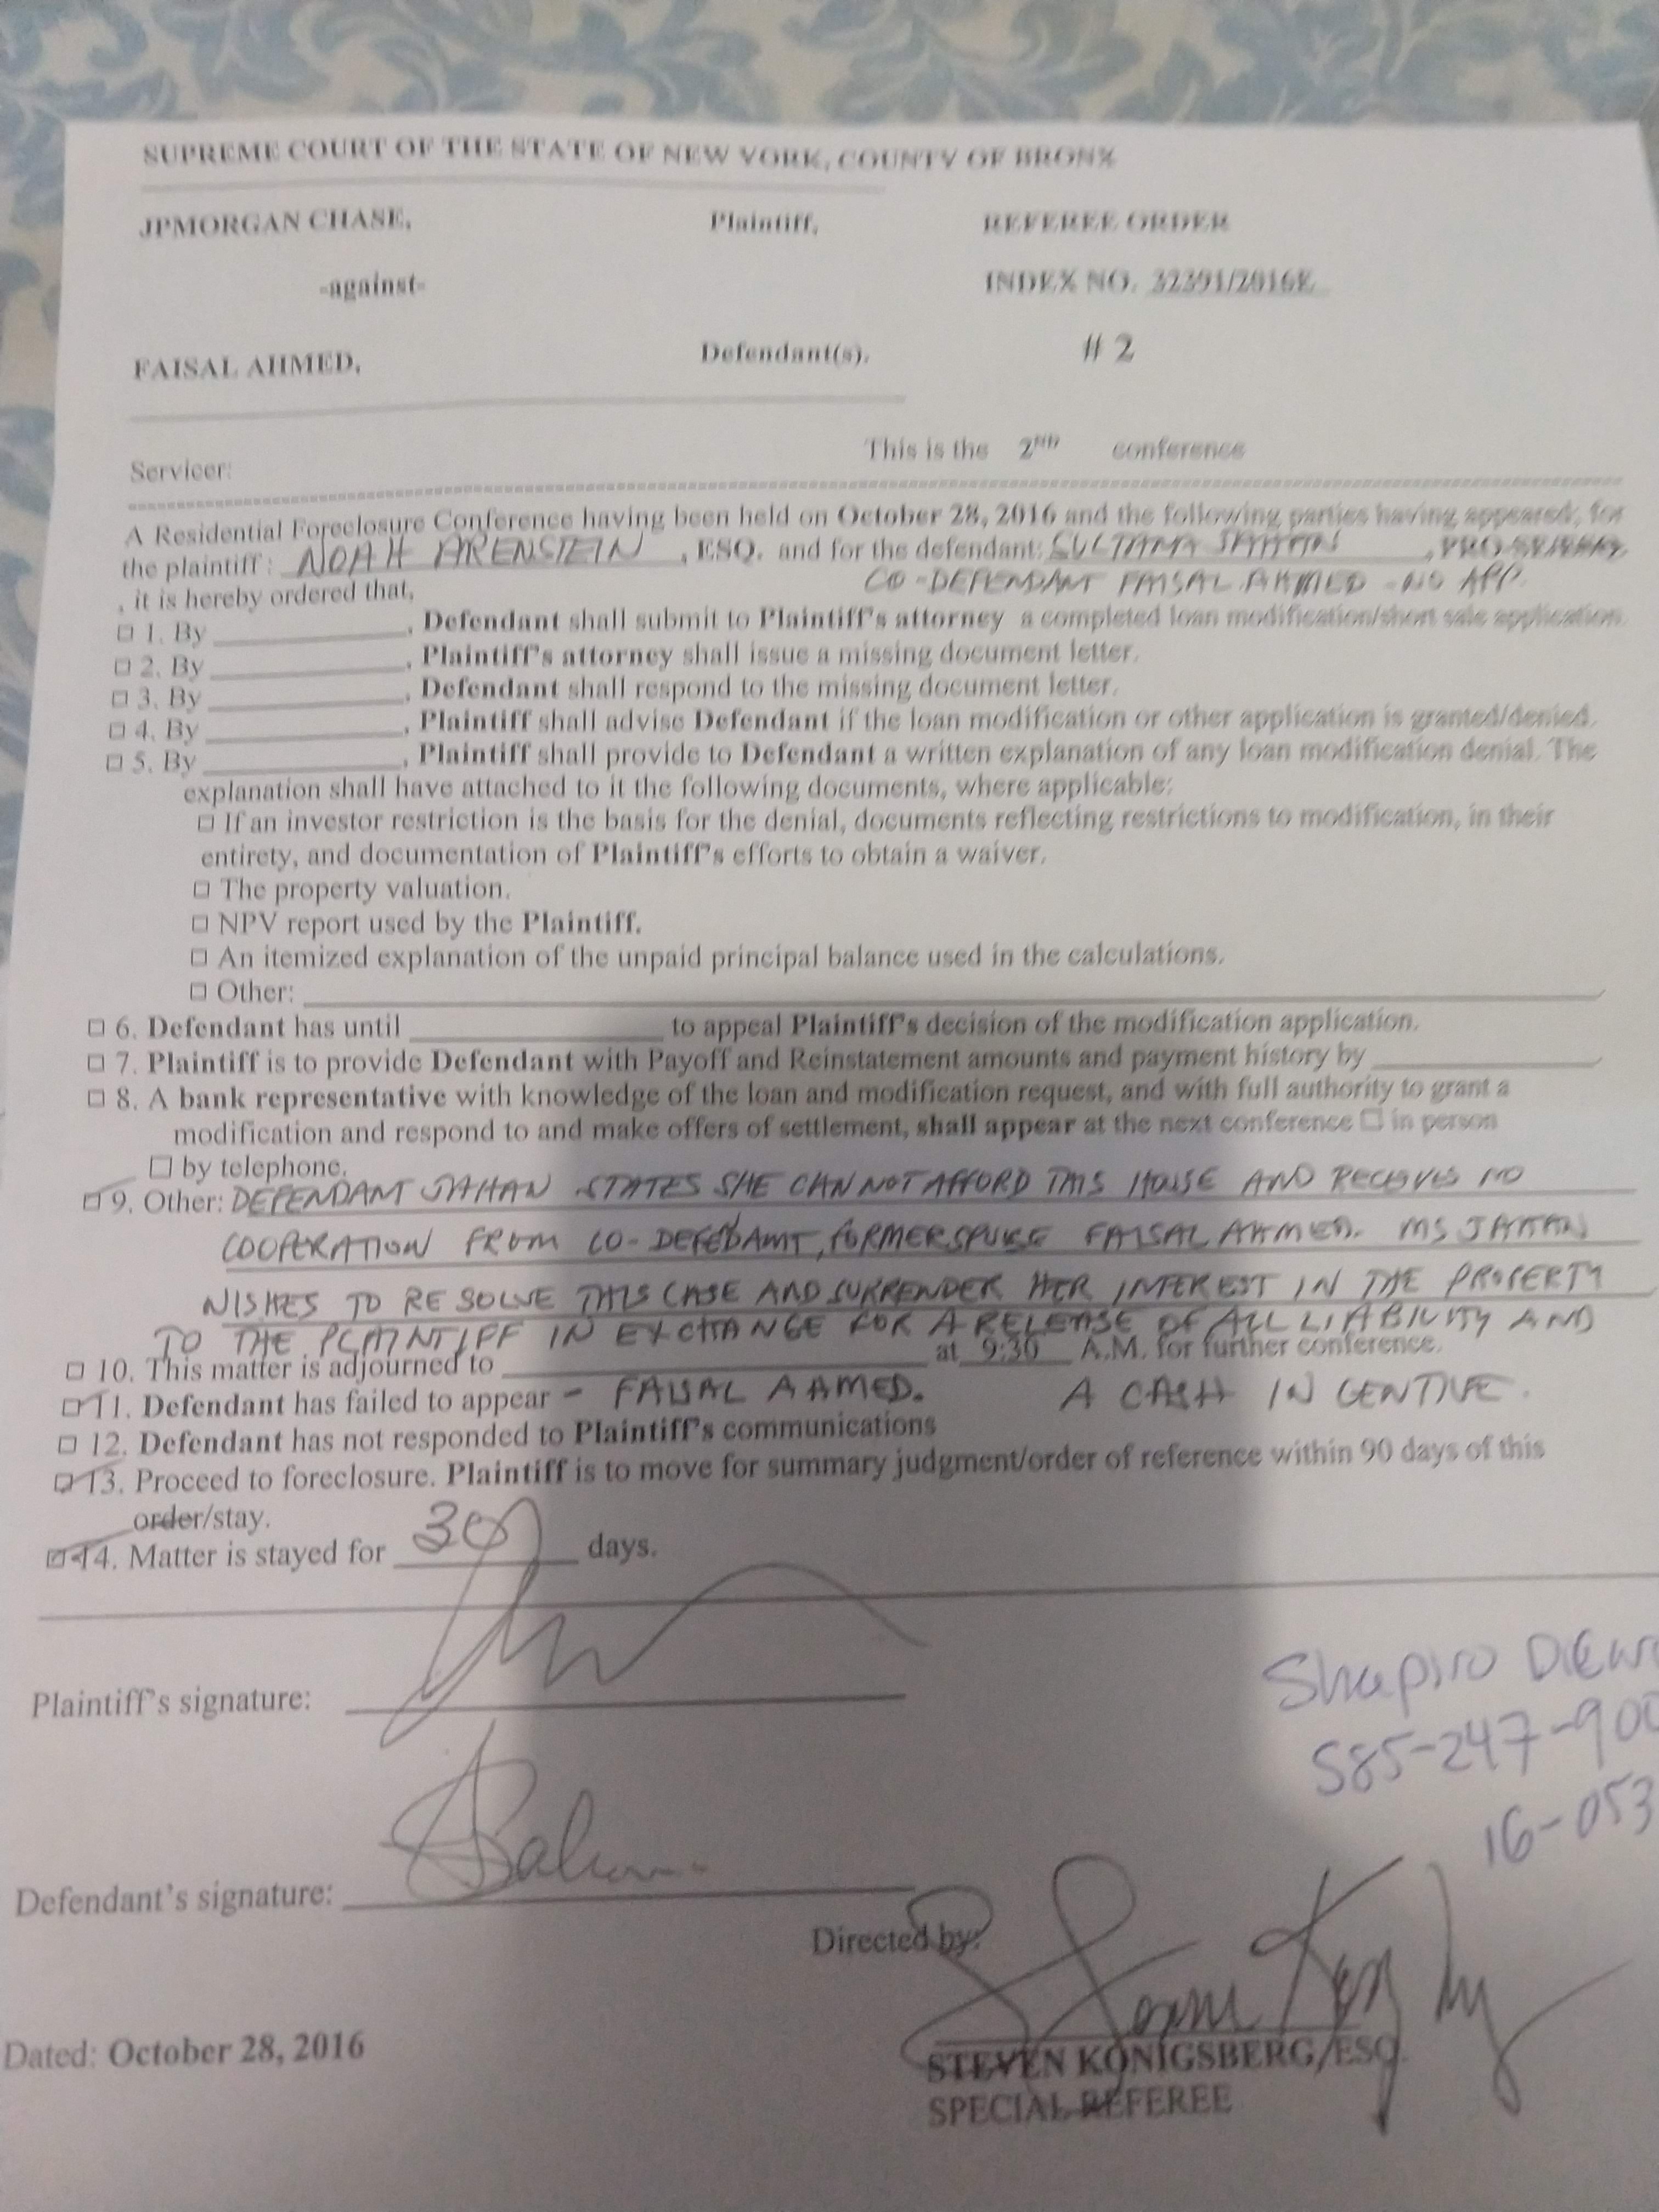 SUPREME COURT OF THE STATE OF NEW YORK, COUNTY OF BRONX
JPMORGAN CHASE, Plaintiff, REFEREE ORDER
-against- INDEX NO. 32391/2016E
FAISAL AHMED, Defendant(s). # 2
This is the 2ND conference
Servicer:
A Residential Foreclosure Conference having been held on October 28, 2016 and the following parties having appeared, for
the plaintiff: NOAH ARENSTEIN, ESQ. and for the defendant: SULTANA
CO-DEFENDANT FAISAL AHMED - NO APP.
, it is hereby ordered that,
□ 1. By ________, Defendant shall submit to Plaintiff's attorney a completed loan modification/short sale application.
□ 2. By ________, Plaintiff's attorney shall issue a missing document letter.
□ 3. By ________, Defendant shall respond to the missing document letter.
□ 4. By ________, Plaintiff shall advise Defendant if the loan modification or other application is granted/denied.
□ 5. By ________, Plaintiff shall provide to Defendant a written explanation of any loan modification denial. The
explanation shall have attached to it the following documents, where applicable:
□ If an investor restriction is the basis for the denial, documents reflecting restrictions to modification, in their
entirety, and documentation of Plaintiff's efforts to obtain a waiver.
□ The property valuation.
□ NPV report used by the Plaintiff.
□ An itemized explanation of the unpaid principal balance used in the calculations.
□ Other:
□ 6. Defendant has until ________ to appeal Plaintiff's decision of the modification application.
□ 7. Plaintiff is to provide Defendant with Payoff and Reinstatement amounts and payment history by ________
□ 8. A bank representative with knowledge of the loan and modification request, and with full authority to grant a
modification and respond to and make offers of settlement, shall appear at the next conference □ in person
□ by telephone.
9. Other: DEFENDANT JAHAN STATES SHE CAN NOT AFFORD THIS HOUSE AND RECEIVES NO
COOPERATION FROM CO-DEFENDANT, FORMER SPOUSE FAISAL AHMED. MS JAHAN
WISHES TO RESOLVE THIS CASE AND SURRENDER HER INTEREST IN THE PROPERTY
TO THE PLAINTIFF IN EXCHANGE FOR A RELEASE OF ALL LIABILITY AND
□ 10. This matter is adjourned to ________ at 9:30 A.M. for further conference.
11. Defendant has failed to appear - FAISAL AHMED. A CASH INCENTIVE.
□ 12. Defendant has not responded to Plaintiff's communications
13. Proceed to foreclosure. Plaintiff is to move for summary judgment/order of reference within 90 days of this
order/stay.
14. Matter is stayed for 30 days.
Shapiro
585-247-900
16-053
Plaintiff's signature:
Defendant's signature:
Directed by:
Dated: October 28, 2016
STEVEN KONIGSBERG, ESQ.
SPECIAL REFEREE